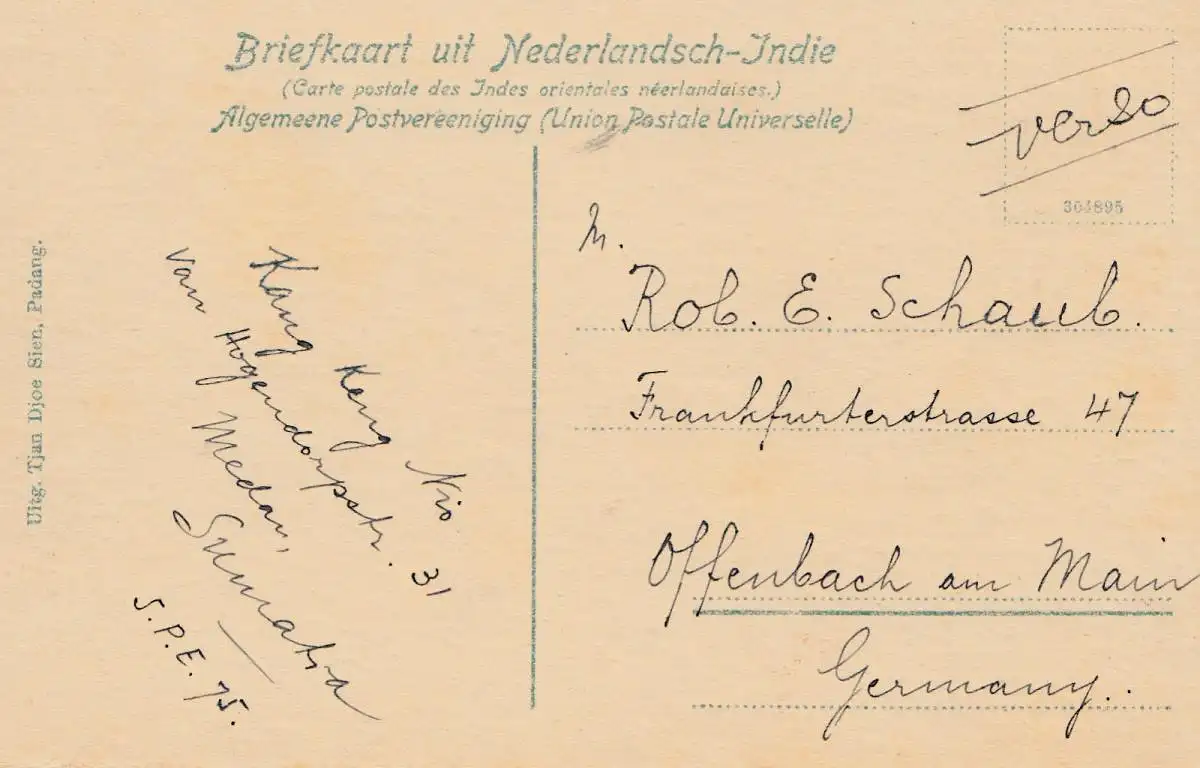 Briefkaart uit Nederlandsch-Indie
(Carte postale des Indes orientales néerlandaises.)
Algemeene Postvereeniging (Union Postale Universelle)
verso
304895
Uitg. Tjan Djoe Sien, Padang.
Kang Keng Nio
van Hogendorpstr. 31
Medan,
Sumatra
S.P.E. 75.
M.
Rob. E. Schaub.
Frankfurterstrasse 47
Offenbach am Main
Germany..